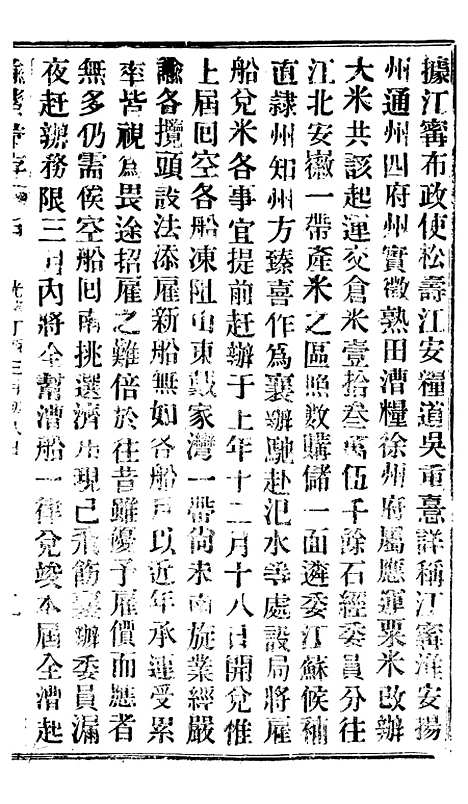 據江甯布政使松壽江安糧道吳重憙詳稱江甯淮安揚
州通州四府州實徵熟田漕糧徐州府屬應運粟米改辦
大米共該起運交倉米壹拾叁萬伍千餘石經委員分往
江北安徽一帶產米之區照數購儲一面遴委江蘇候補
直隸州知州方臻喜作為襄辦馳赴氾水等處設局將雇
船兌米各事宜提前赶辦于上年十二月十八日開兌惟
上屆回空各船凍阻山東戴家灣一帶尙未南旋業經嚴
諭各攬頭設法添雇新船無如各船戶以近年承運受累
率皆視為畏途招雇之難倍於往昔雖優予雇價而應者
無多仍需俟空船回南挑選濟用現已飛飭襄辦委員漏
夜赶辦務限三月內將全幫漕船一律兌竣本屆全漕起
諭摺彙存